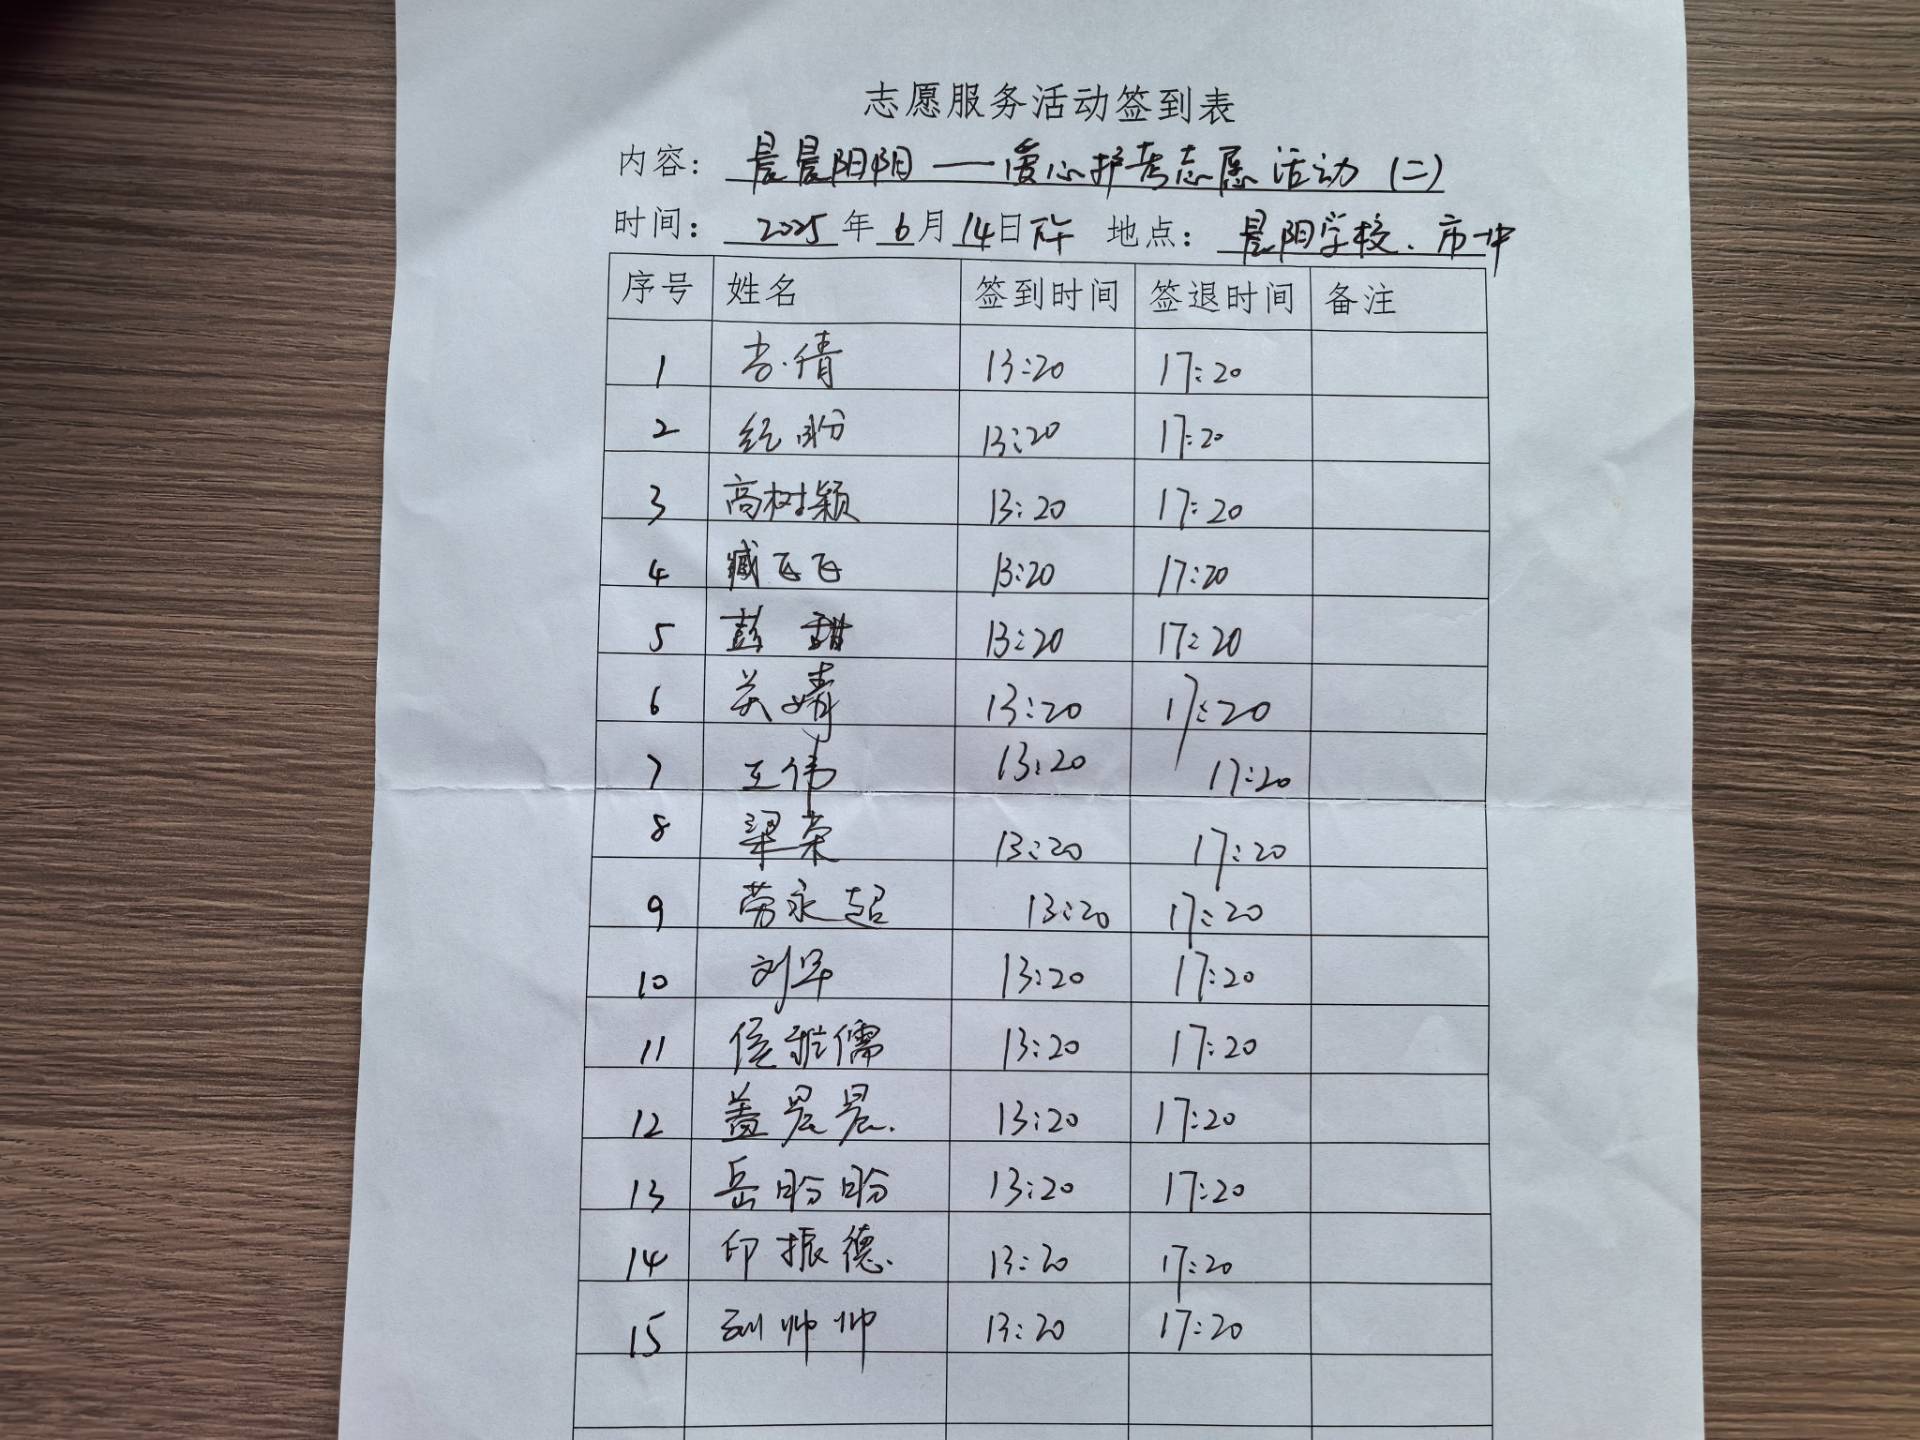 志愿服务活动签到表
内容: 晨晨阳阳——爱心护考志愿活动(二)
时间: 2025年6月14日下午 地点: 晨阳学校、市一中
序号 姓名 签到时间 签退时间 备注
1 倩 13:20 17:20
2 纪盼 13:20 17:20
3 高树颖 13:20 17:20
4 臧飞飞 13:20 17:20
5 彭甜 13:20 17:20
6 关婧 13:20 17:20
7 王伟 13:20 17:20
8 梁荣 13:20 17:20
9 劳永超 13:20 17:20
10 刘军 13:20 17:20
11 侯雅儒 13:20 17:20
12 盖晨晨 13:20 17:20
13 岳盼盼 13:20 17:20
14 印振德 13:20 17:20
15 帅帅 13:20 17:20